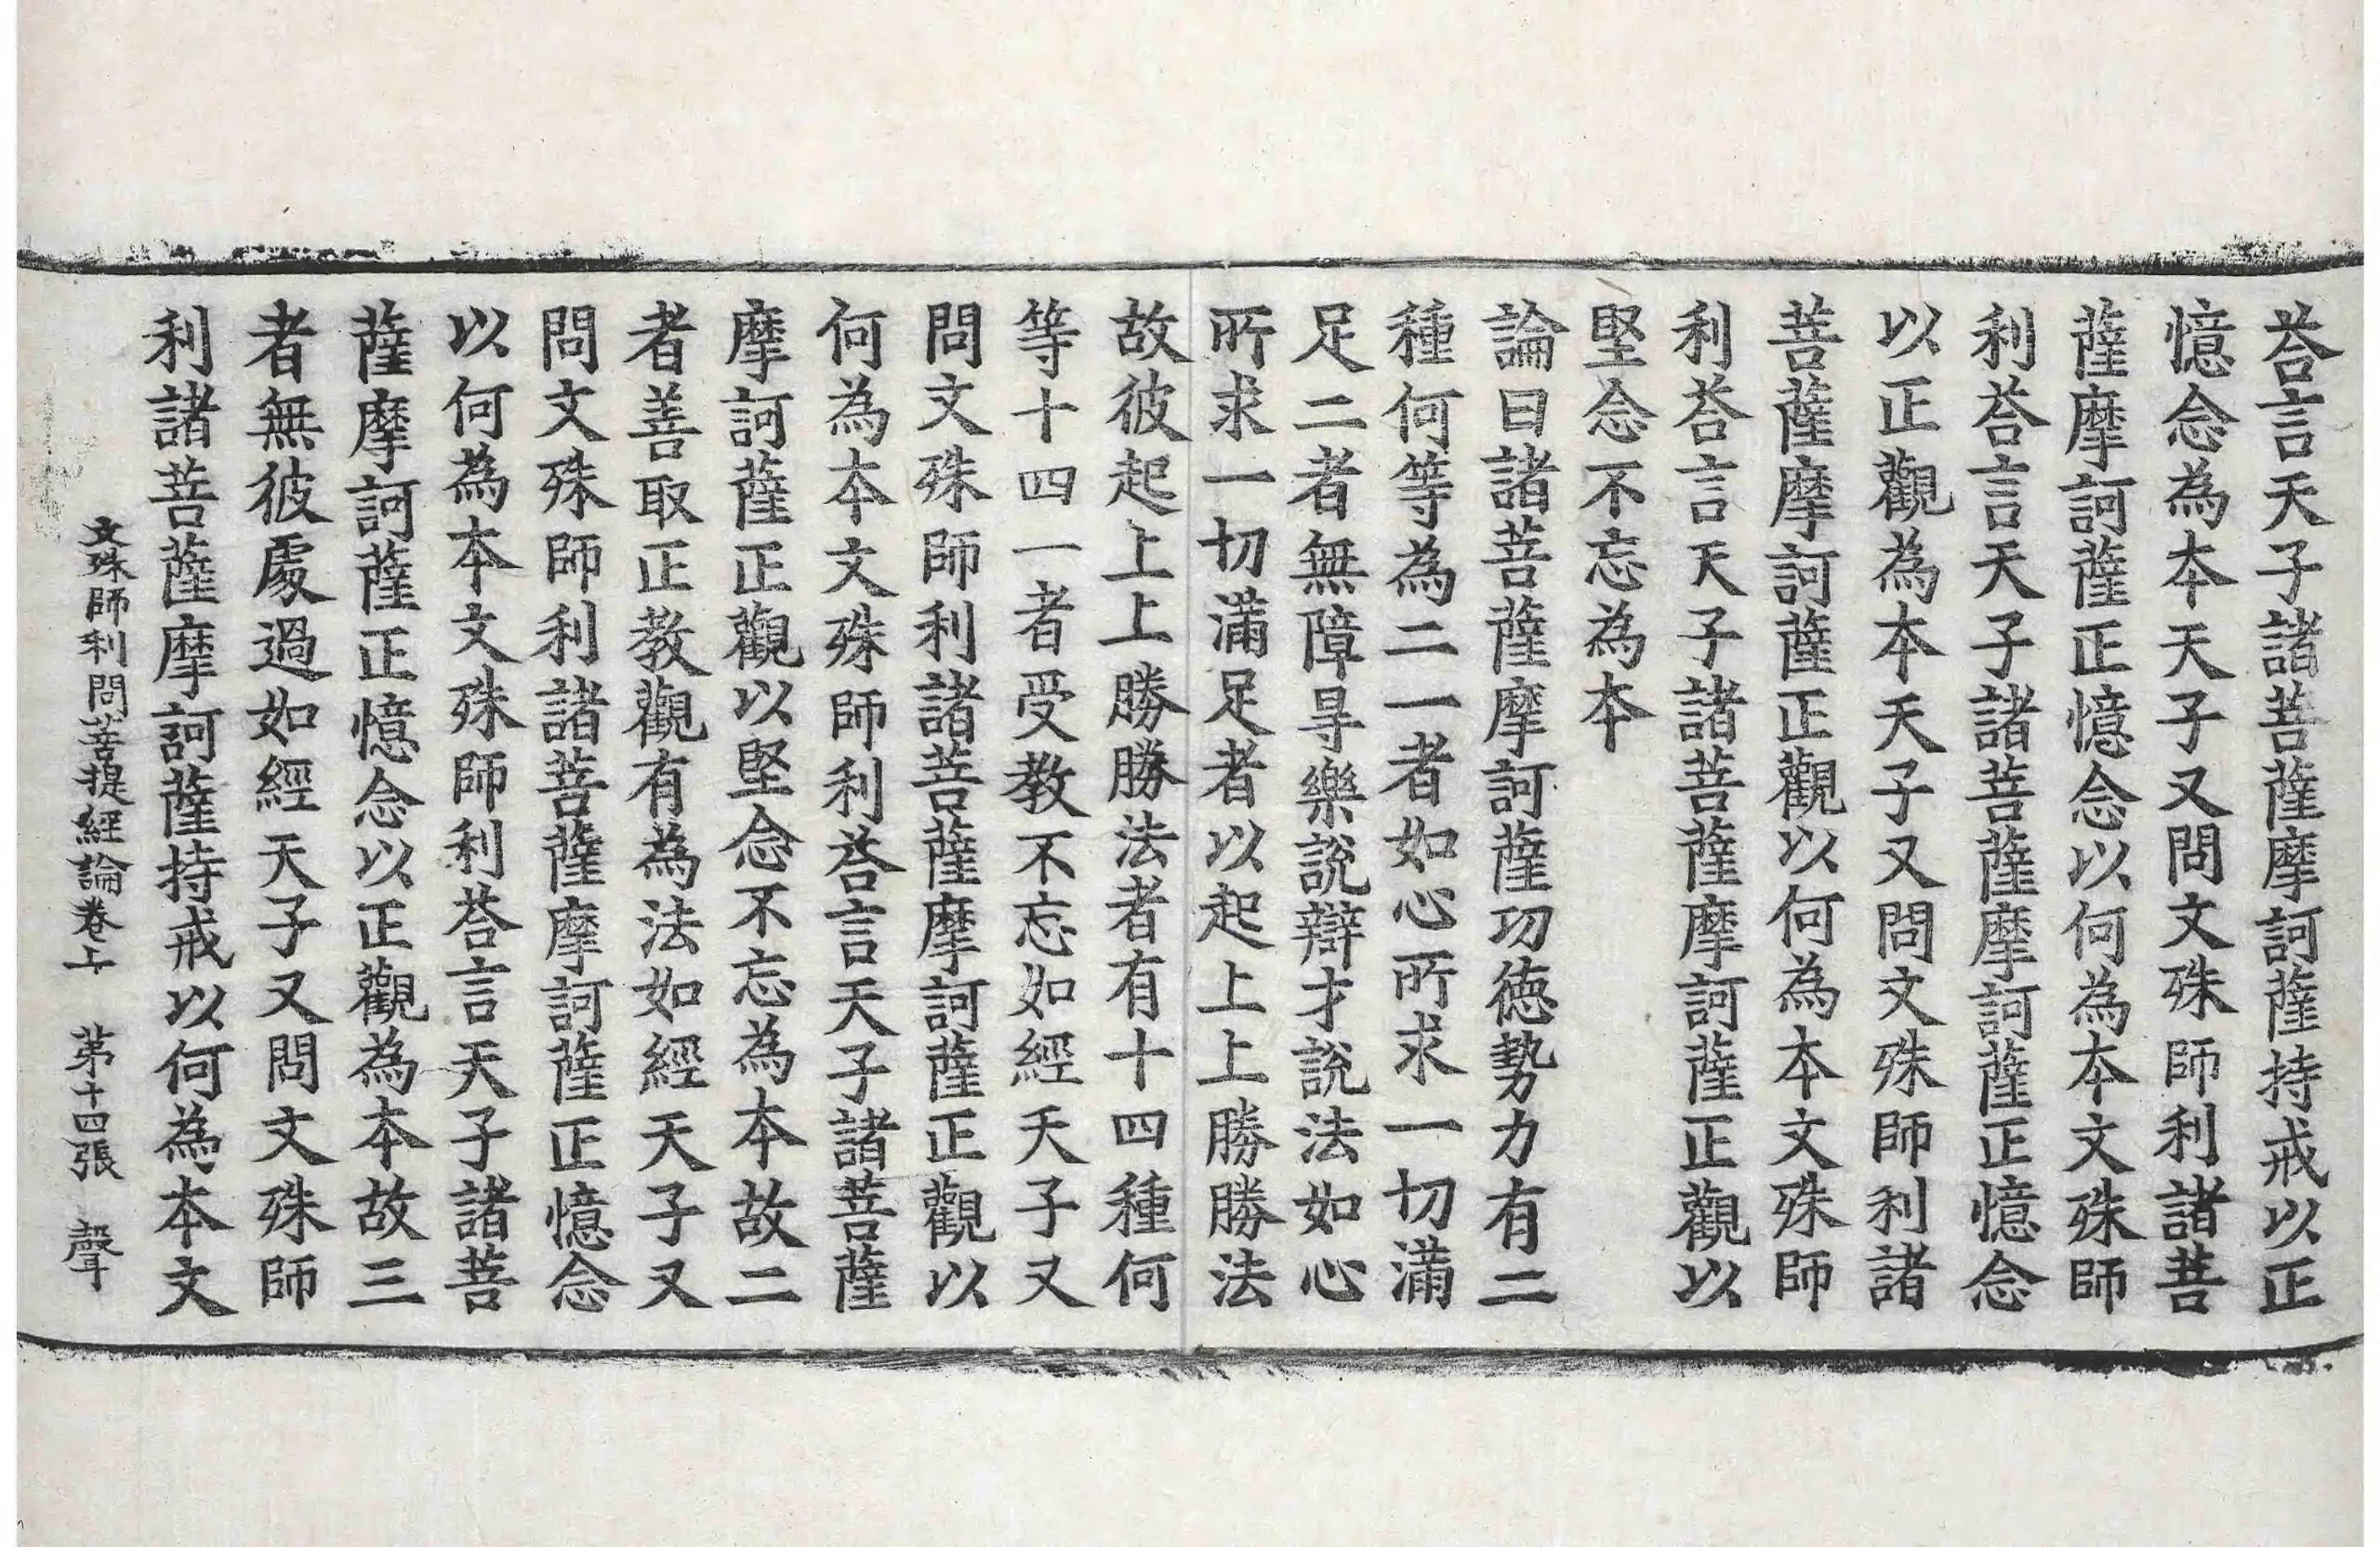 荅言天子諸菩薩摩訶薩持戒以正
憶念為本天子又問文殊師利諸菩
薩摩訶薩正憶念以何為本文殊師
利荅言天子諸菩薩摩訶薩正憶念
以正觀為本天子又問文殊師利諸
菩薩摩訶薩正觀以何為本文殊師
利荅言天子諸菩薩摩訶薩正觀以
堅念不忘為本
論曰諸菩薩摩訶薩功徳勢力有二
種何等為二一者如心所求一切滿
足二者無障㝵樂說辯才說法如心
所求一切滿足者以起上上勝勝法
故彼起上上勝勝法者有十四種何
等十四一者受教不忘如經天子又
問文殊師利諸菩薩摩訶薩正觀以
何為本文殊師利荅言天子諸菩薩
摩訶薩正觀以堅念不忘為本故二
者善取正教觀有為法如經天子又
問文殊師利諸菩薩摩訶薩正憶念
以何為本文殊師利荅言天子諸菩
薩摩訶薩正憶念以正觀為本故三
者無彼處過如經天子又問文殊師
利諸菩薩摩訶薩持戒以何為本文
文殊師利問菩提經論卷上 苐十四張 聲